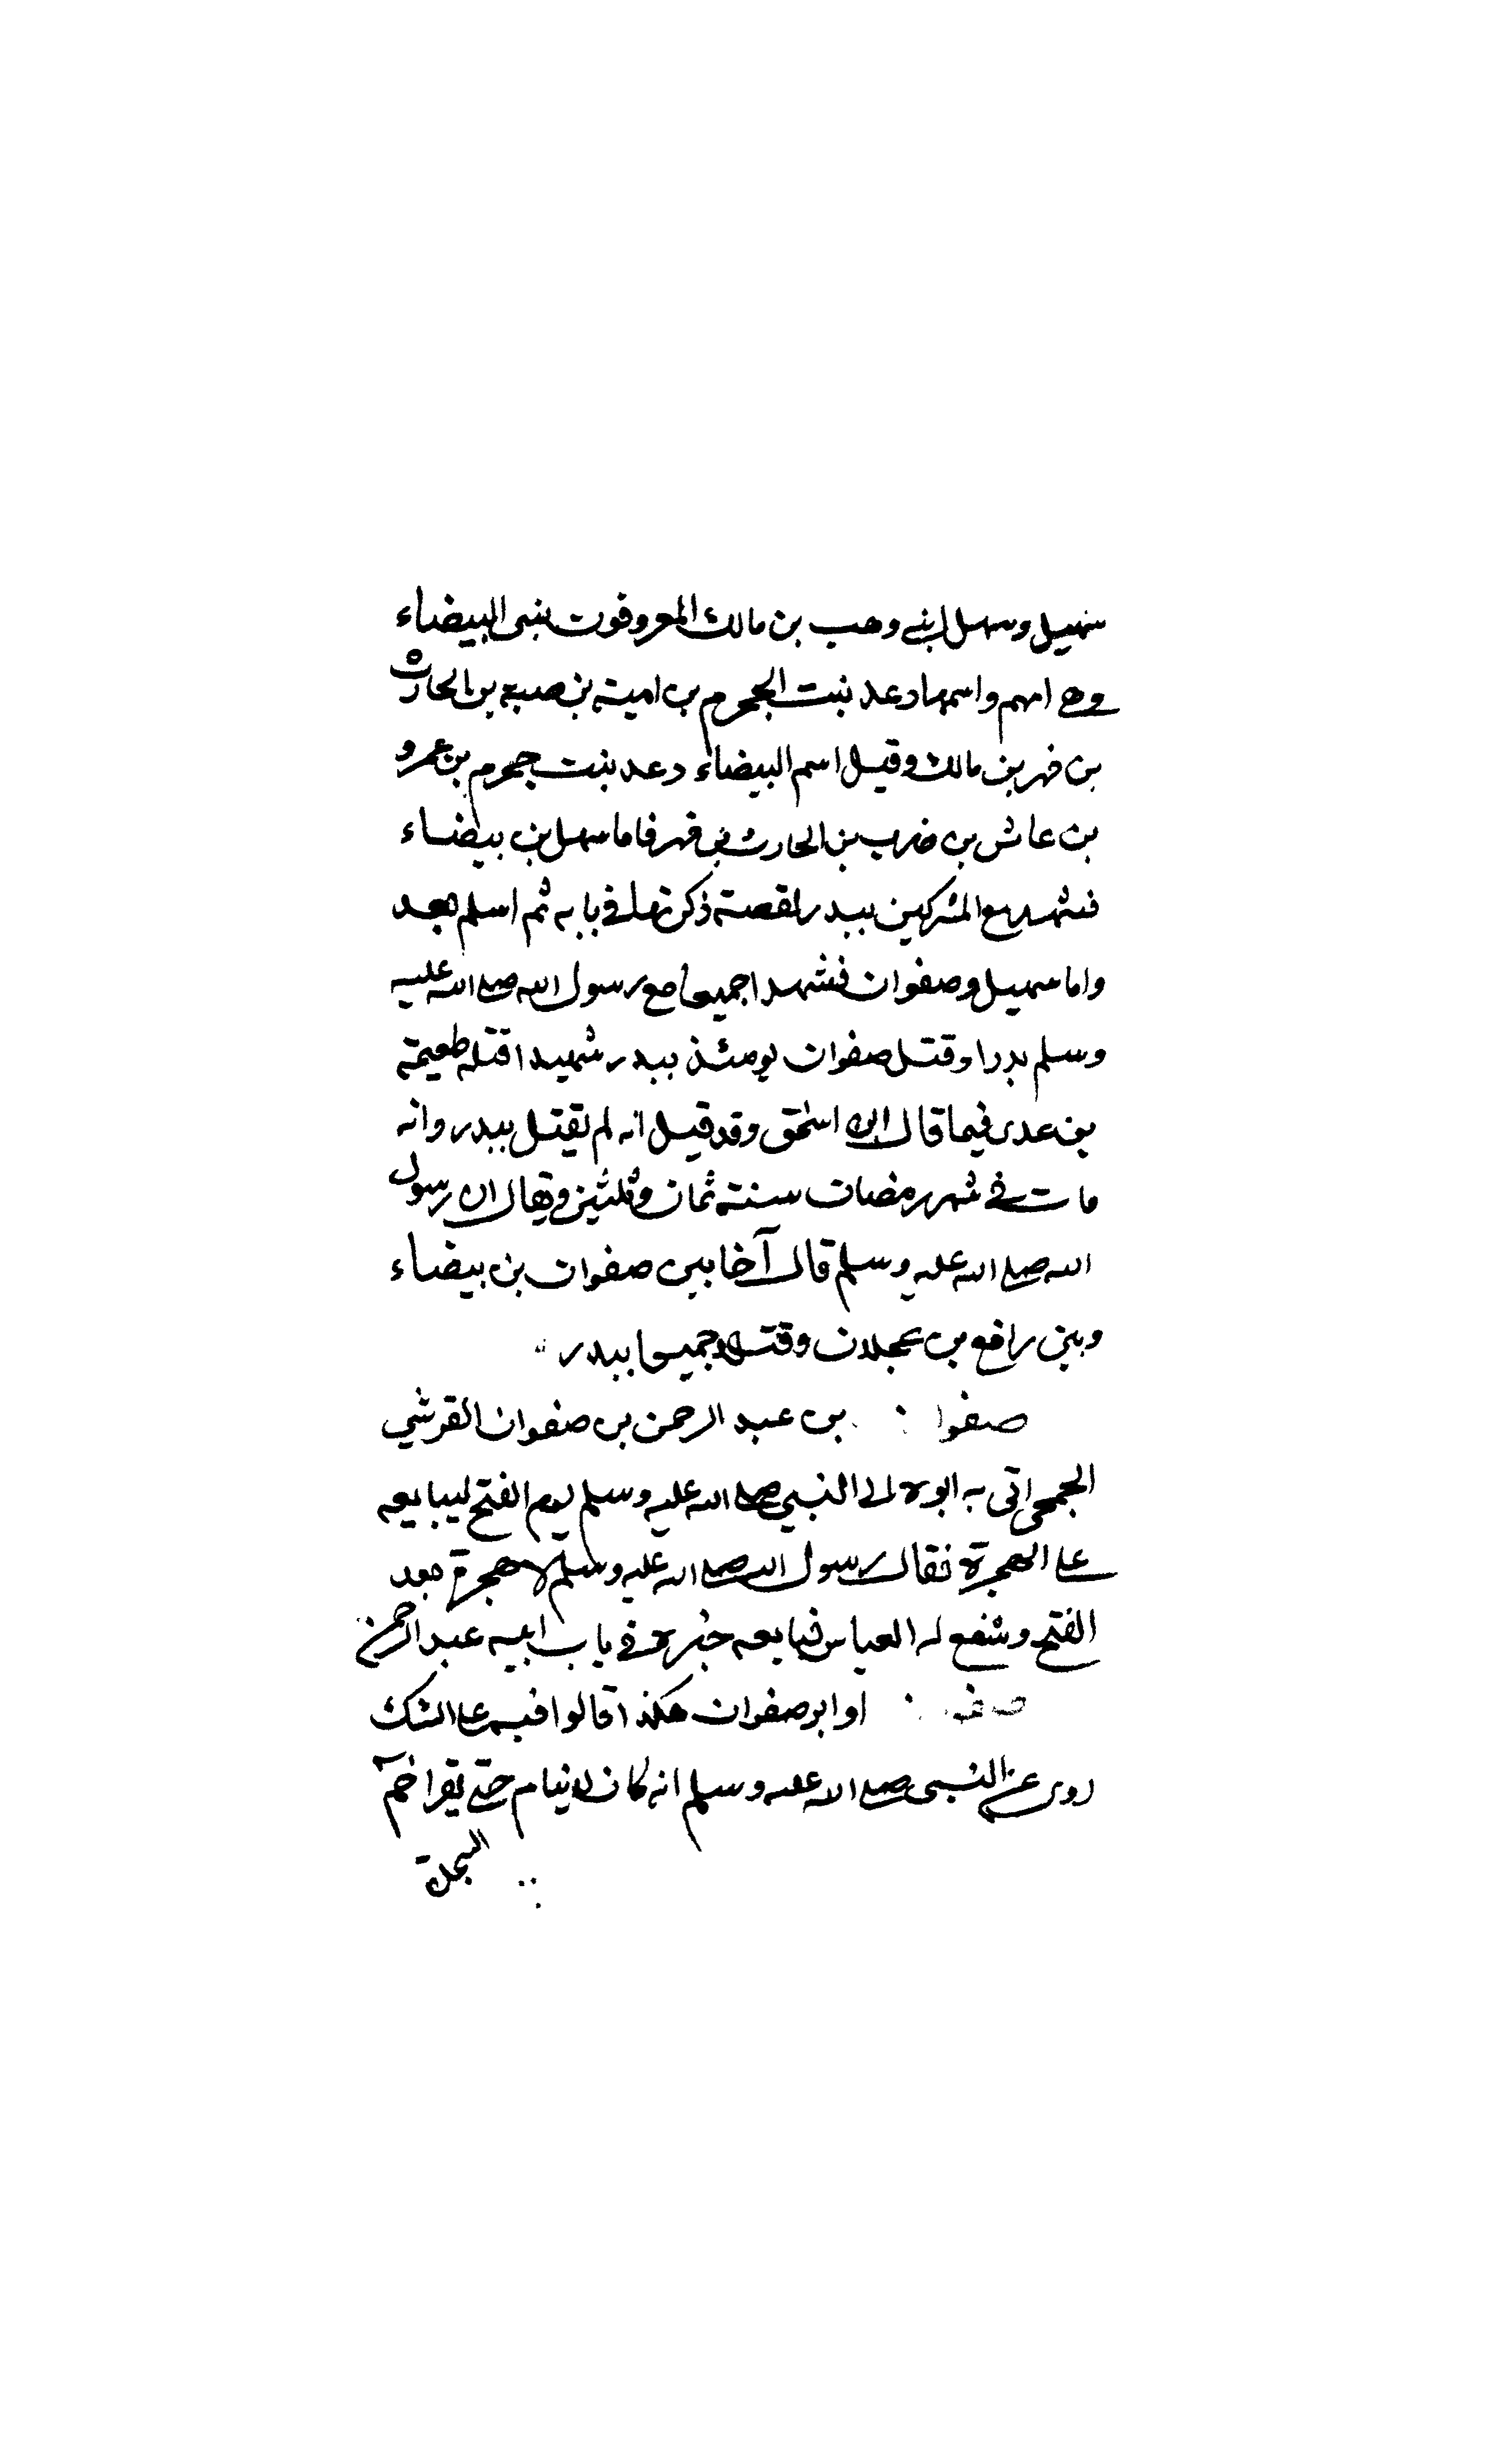 سهيل وسهل ابنى وهب بن مالك المعروفون ببنى البيضاء
وهى امهم واسمها دعد بنت الجحرم بن امية بن ضبة بن الحارث
بن فهر بن مالك وقيل اسم البيضاء دعد بنت جحرم بن عمرو
بن عائش بن ضرب بن الحارث بن فهر فاما سهل بن بيضاء
فشهد مع المشركين ببدر لقصة ذكرتها فى بابه ثم اسلم بعد
واما سهيل وصفوان فشهدا جميعا مع رسول الله صلى الله عليه
وسلم بدرا وقتل صفوان يومئذ ببدر شهيدا قتله طعيمة
بن عدى فيما قال ابن اسحق وقد قيل انه لم يقتل ببدر وانه
مات فى شهر رمضان سنة ثمان وثلثين ويقال ان رسول
الله صلى الله عليه وسلم قال آخا بين صفوان بن بيضاء
وبين رافع بن عجلان وقتلا جميعا ببدر
صفوا بن عبد الرحمن بن صفوان القرشي
الجمحى اتى به ابوه الى النبي صلى الله عليه وسلم يوم الفتح ليبايعه
على الهجرة فقال رسول الله صلى الله عليه وسلم لا هجرة بعد
الفتح وشفع له العباس فبايعه خبره فى باب ابيه عبد الرحمن
او ابو صفوان هكذا قالوا فيه على الشك
روى عن النبى صلى الله عليه وسلم انه كان لا ينام حتى يقرا حم
السجدة